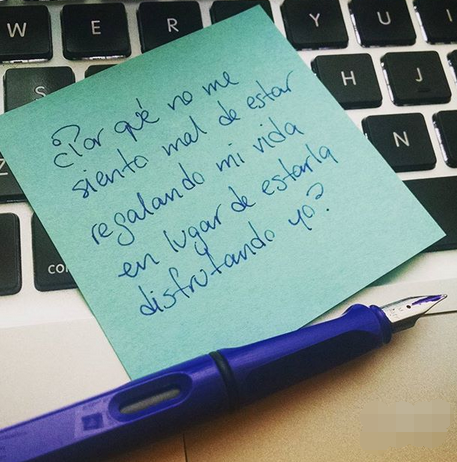 W E R Y U I
S H J
Z N
con
¿Por qué no me
siento mal de estar
regalando mi vida
en lugar de estarla
disfrutando yo?